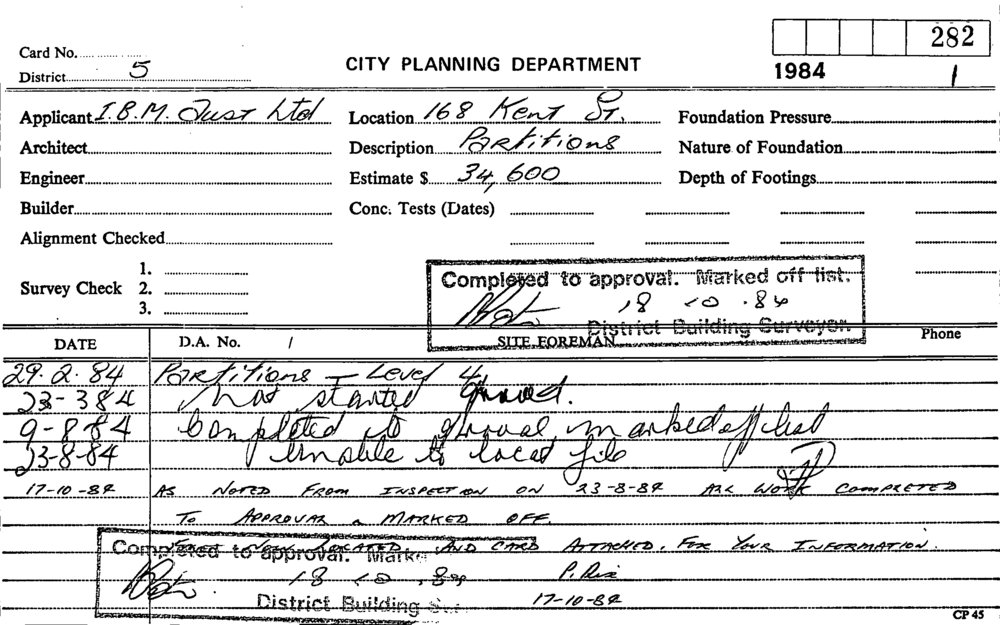 Card No.
282
District 5
CITY PLANNING DEPARTMENT
1984
1
Applicant I.B.M. Aust Ltd
Location 168 Kent St.
Foundation Pressure
Architect
Description Partitions
Nature of Foundation
Engineer
Estimate $ 34,600
Depth of Footings
Builder
Conc. Tests (Dates)
Alignment Checked
Survey Check 1.
2.
3.
Completed to approval. Marked off list.
18 10 .84
District Building Surveyor.
DATE
D.A. No. 1
SITE FOREMAN
Phone
29.2.84 Partitions — Level 4
23-3 84 not started
9-8-84 Completed to marked off list
23-8-84 Unable to locat file
17-10-84 AS NOTED FROM INSPECTION ON 23-8-84 ALL WORK COMPLETED
TO APPROVAL & MARKED OFF.
LOCATED AND CARD ATTACHED. FOR YOUR INFORMATION.
Completed to approval. Marke
18 10 .84
17-10-84
District Building
CP 45